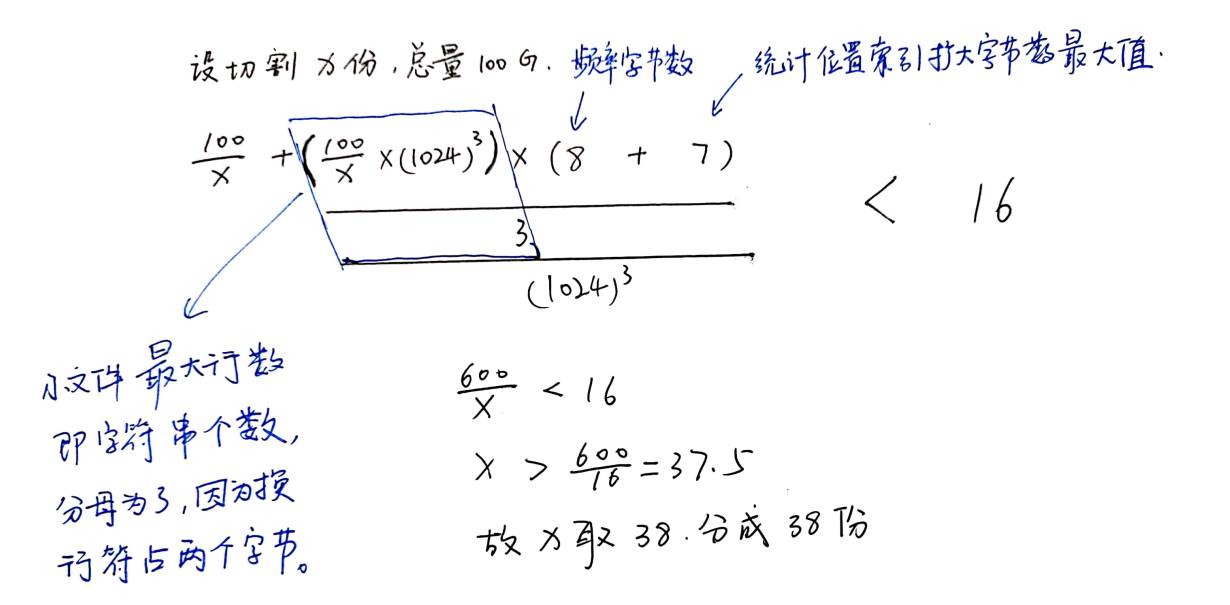 设切割 x 份,总量 100 G. 频率字节数 统计位置索引扩大字节数最大值.
100/x + (100/x ×(1024)³) × (8 + 7)
3
(1024)³
< 16
小文件最大行数
即字符串个数,
分母为3,因为换
行符占两个字节。
600/x < 16
x > 600/16 = 37.5
故 x 取 38. 分成 38 份